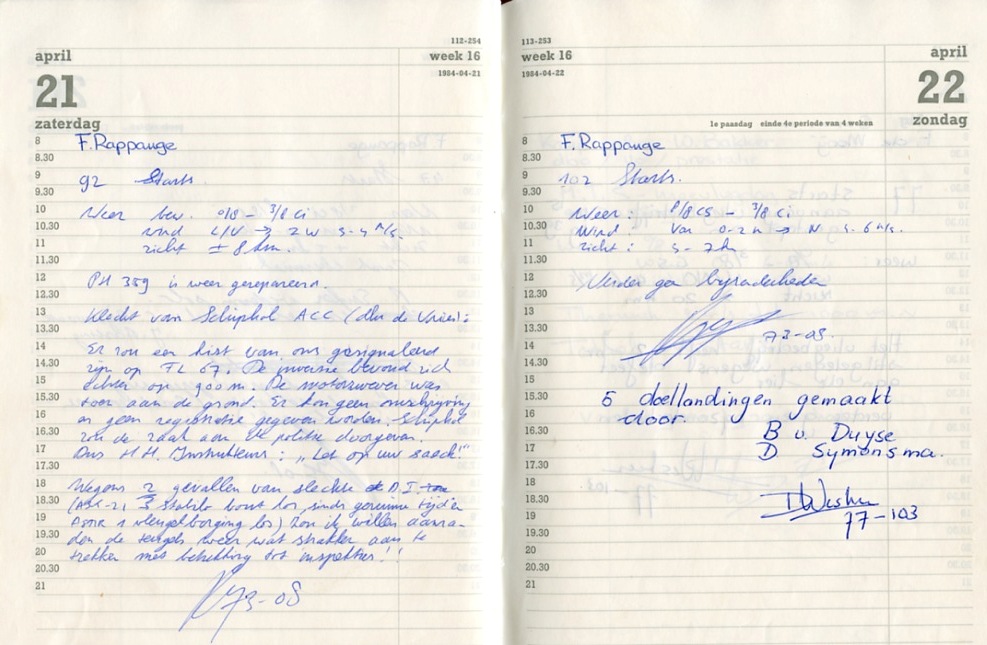 112-254
april
week 16
21
1984-04-21
zaterdag
8 F. Rappange
8.30
9 92 Starts.
9.30
10 Weer bew. 0/8 - 3/8 ci
10.30 wind L/V → ZW 3-4 m/s.
11 zicht ± 8 km.
11.30
12 PH 359 is weer gerepareerd.
12.30
13 Klacht van Schiphol ACC (dhr de Vries):
13.30
14 Er zou een kist van ons gesignaleerd
14.30 zijn op FL 67. De inversie bevond zich
15 echter op 900 m. De motorzwever was
15.30 toen aan de grond. Er kon geen omschrijving
16 en geen registratie gegeven worden. Schiphol
16.30 zou de zaak aan de politie doorgeven.
17 Dus H.H. Instructeurs: „Let op uw zaack!"
17.30
18 Wegens 2 gevallen van slechte D.I.
18.30 (ASK-21 stabilo bout los sinds geruime tijd en
19 1 vleugelborging los) zou ik willen aanra-
19.30 den de teugels weer wat strakker aan te
20 trekken met betrekking tot inspecties!!
20.30
21 73-08
113-253
week 16
april
1984-04-22
22
1e paasdag einde 4e periode van 4 weken
zondag
8 F. Rappange
8.30
9 102 Starts.
9.30
10 Weer: 0/8 cs - 3/8 ci
10.30 Wind Var 0-2 m → N 5-6 m/s.
11 zicht: 5-7 km
11.30
12 Verder geen bijzonderheden
12.30
13
13.30 73-08.
14
14.30
15
15.30 5 doellandingen gemaakt
16 door.
16.30 B v. Duyse
17 D Symonsma.
17.30
18
18.30
19 77-103
19.30
20
20.30
21